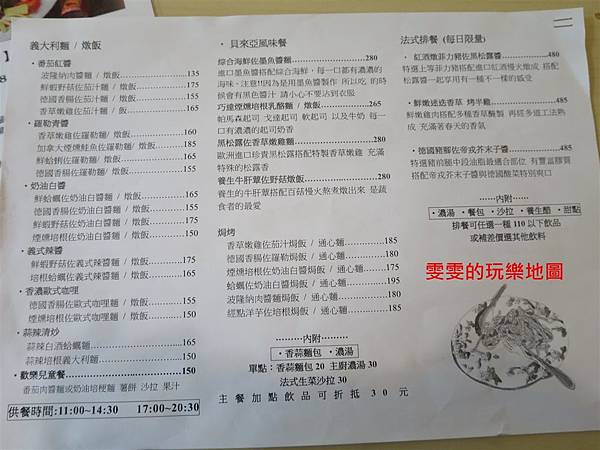 義大利麵 / 燉飯
・番茄紅醬
波隆納肉醬麵 / 燉飯 135
鮮蝦野菇佐茄汁麵 / 燉飯 175
德國香腸佐茄汁麵 / 燉飯 155
香草嫩雞佐茄汁麵 / 燉飯 160
・羅勒青醬
香草嫩雞佐羅勒麵/ 燉飯 160
加拿大煙燻鮭魚佐羅勒麵/ 燉飯 185
鮮蛤蜊佐羅勒麵/ 燉飯 165
德國香腸佐羅勒麵/ 燉飯 155
・奶油白醬
鮮蛤蠣佐奶油白醬麵 / 燉飯 165
德國香腸佐奶油白醬麵 / 燉飯 155
鮮蝦野菇佐奶油白醬麵 / 燉飯 175
煙燻培根佐奶油白醬麵 / 燉飯 155
・義式辣醬
鮮蝦野菇佐義式辣醬麵 / 燉飯 175
培根蛤蠣佐義式辣醬麵 / 燉飯 165
・香濃歐式咖哩
德國香腸佐歐式咖哩麵 / 燉飯 150
煙燻培根佐歐式咖哩麵 / 燉飯 150
・蒜辣清炒
蒜辣白酒蛤蠣麵 165
蒜辣培根義大利麵 150
・歡樂兒童餐 150
番茄肉醬麵或奶油培根麵 薯餅 沙拉 果汁
供餐時間:11:00~14:30 17:00~20:30
・貝來亞風味餐
綜合海鮮佐墨魚醬麵 280
進口墨魚醬搭配綜合海鮮，每一口都有濃濃的
海味。注意!!因為是用墨魚醬製作 所以吃 的時
候會有黑色醬汁 請小心不要沾到衣服
巧達煙燻培根乳酪麵 / 燉飯 265
帕馬森起司 戈達起司 軟起司 以及牛奶 每一
口有濃濃的起司奶香
黑松露佐香草嫩雞麵 280
歐洲進口珍貴黑松露搭配特製香草嫩雞 充滿
特殊的松露香
養生牛肝蕈佐野菇燉飯 280
養生的牛肝蕈搭配百菇慢火熬煮燉出來 是蔬
食者的最愛
焗烤
香草嫩雞佐茄汁焗飯 / 通心麵 185
海鮮佐青醬焗飯 / 通心麵 195
煙燻培根佐白醬焗飯 / 通心麵 175
德國香腸佐紅醬焗飯 / 通心麵 175
波隆納肉醬麵焗飯 / 通心麵 165
經點洋芋佐培根焗飯 / 通心麵 185
內附
・香蒜麵包 ・濃湯
單點：香蒜麵包 20 主廚濃湯 30
法式生菜沙拉 30
主餐加點飲品可折抵 30 元
法式排餐 (每日限量)
・紅酒燉菲力豬佐黑松露醬 480
特選上等菲力豬搭配進口紅酒慢火燉成 搭配
松露醬一起享用有一種不一樣的感受
・鮮嫩迷迭香草 烤半雞 485
鮮嫩雞肉搭配多種香草醃製 再經多道工法熟
成 充滿著春天的香氣
・德國豬腳佐帝戎芥末子醬 485
特選豬前腿中段油脂最適合部位 有豐富膠質
搭配帝戎芥末子醬與德國酸菜特別爽口
內附
・濃湯 ・餐包 ・沙拉 ・養生醋 ・甜點
排餐可任選一種 110 以下飲品
或補差價選其他飲料
雯雯的玩樂地圖